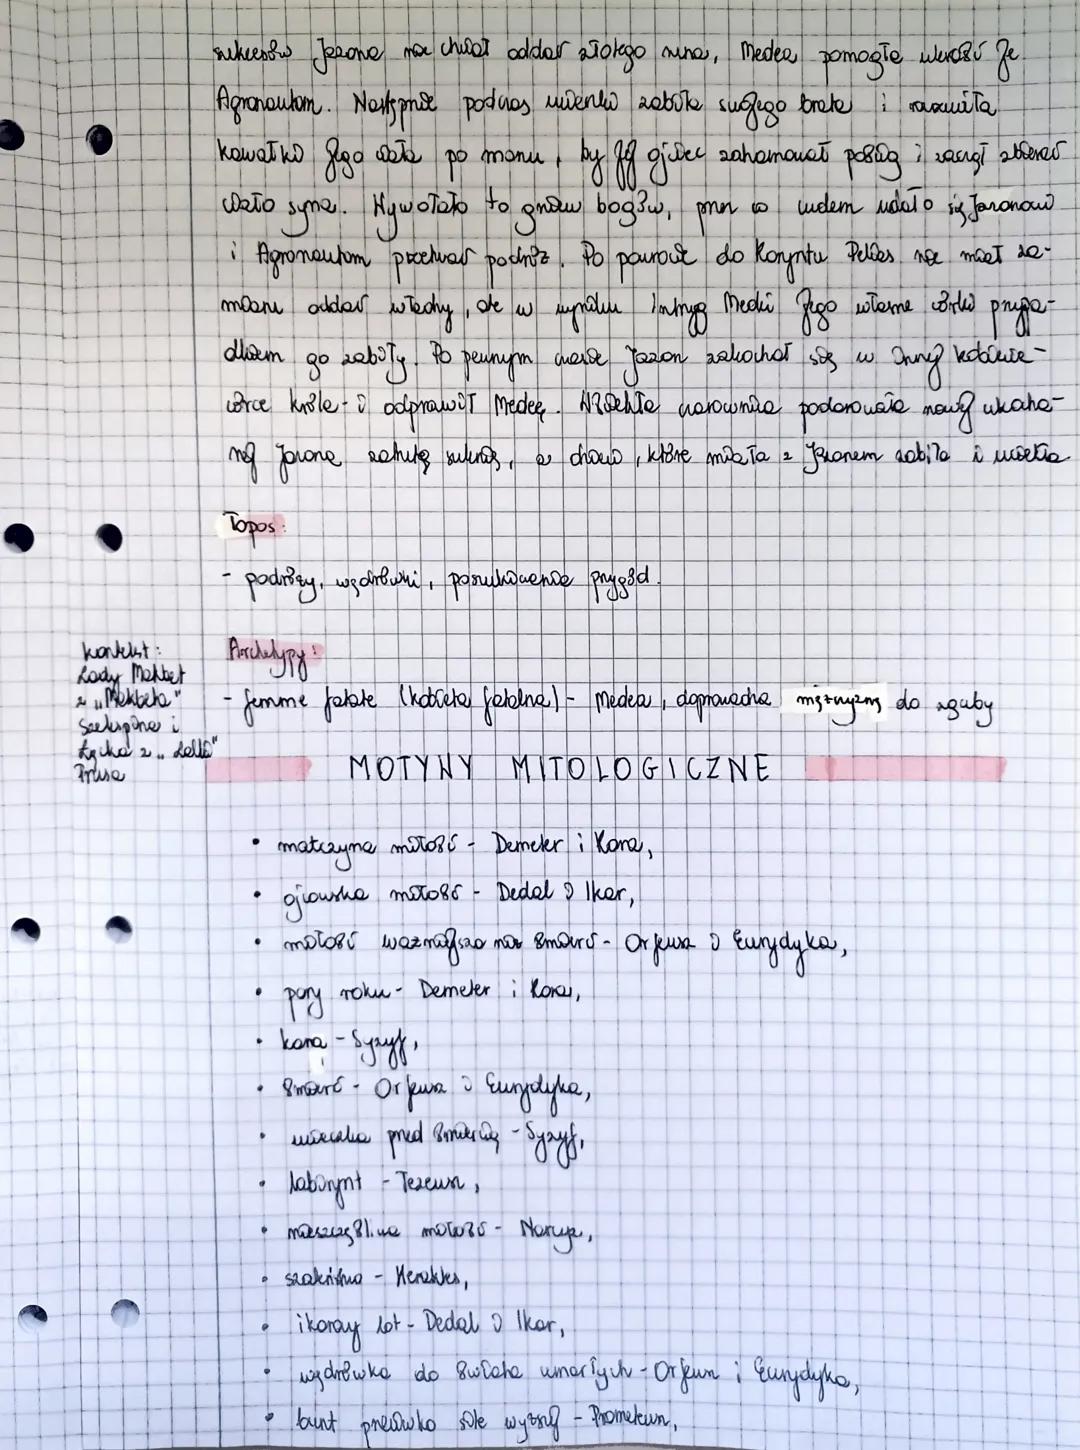 sukcesów Jazona nie chciał oddać złotego runa, Medea pomogła ukraść je
Agronautom. Następnie podczas ucieczki zabiła swojego brata i rozrzuciła
kawałki jego ciała po morzu, by jej ojciec zahamował pościg i zaczął zbierać
ciało syna. Wywołało to gniew bogów, przez co cudem udało się Jazonowi
i Agronautom przetrwać podróż. Po powrocie do Koryntu Pelias nie miał za-
miaru oddać władzy, ale w wyniku intryg Medei jego własne córki przypa-
dkiem go zabiły. Po pewnym czasie Jazon zakochał się w innej kobiecie -
córce króla - i odprawił Medeę. Wściekła czarownica podarowała nowej ukocha-
nej Jazona zatrutą suknię, a dzieci, które miała z Jazonem zabiła i uciekła
Topos:
- podróży, wędrówki, poszukiwania przygód.
Archetypy:
- femme fatale (kobieta fatalna) - Medea, doprowadza mężczyznę do zguby
kontekst:
Lady Makbet
z „Makbeta"
Szekspira i
Łęcka z „Lalki"
Prusa
MOTYWY MITOLOGICZNE
• matczyna miłość - Demeter i Kora,
• ojcowska miłość - Dedal i Ikar,
• miłość ważniejsza niż śmierć - Orfeusz i Eurydyka,
• pory roku - Demeter i Kora,
• kara - Syzyf,
• śmierć - Orfeusz i Eurydyka,
• ucieczka przed śmiercią - Syzyf,
• labirynt - Tezeusz,
• nieszczęśliwa miłość - Narcyz,
• szaleństwo - Herakles,
• ikaryjski lot - Dedal i Ikar,
• wędrówka do świata umarłych - Orfeusz i Eurydyka,
• bunt przeciwko sile wyższej - Prometeusz,